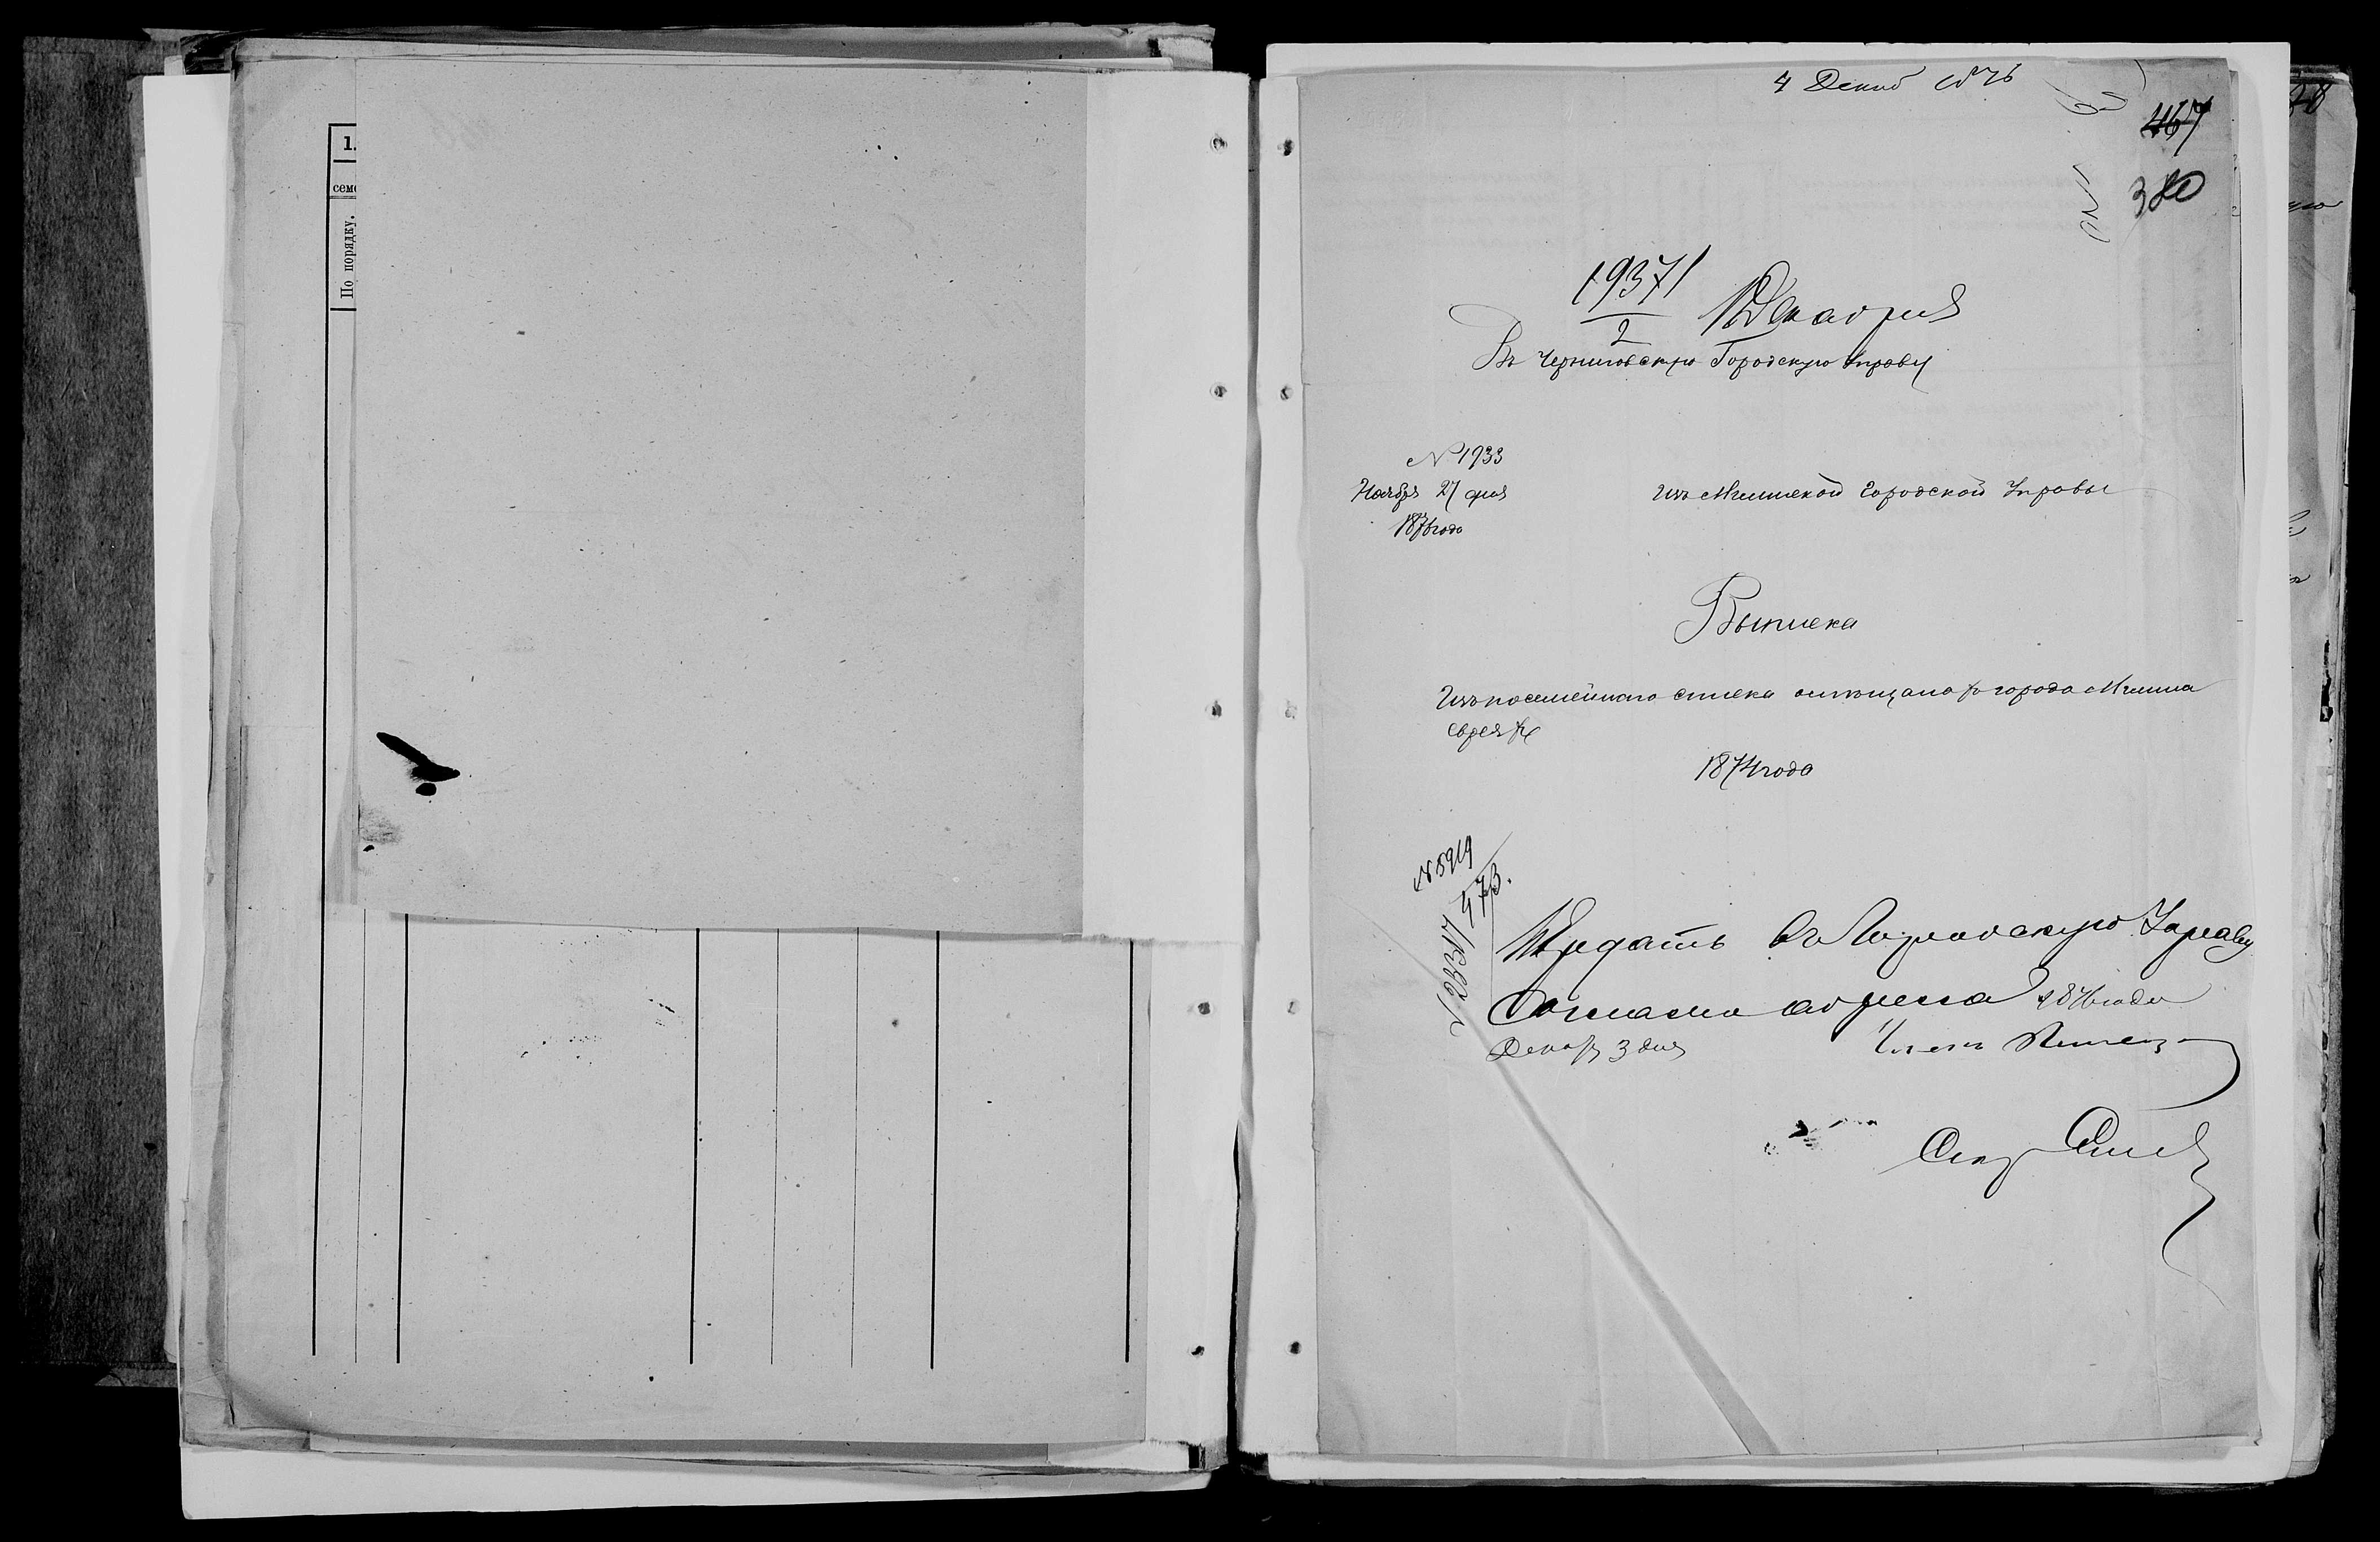 1.
семе
По порядку.
4 Декаб 1876
467
380
19371
2 Декабря
Въ Черниговскую Городскую Управу
N 1933
Ноября 27 дня
1876 года
Изъ Мглинской Городской Управы
Выписка
Изъ посемейнаго списка о мѣщанахъ города Мглина
евреяхъ
1874 года
N 5919
473.
N 23317
Передать въ Городскую Управу
Согласно адресса 1876 года
Декабр 3 дня Членъ
Секр